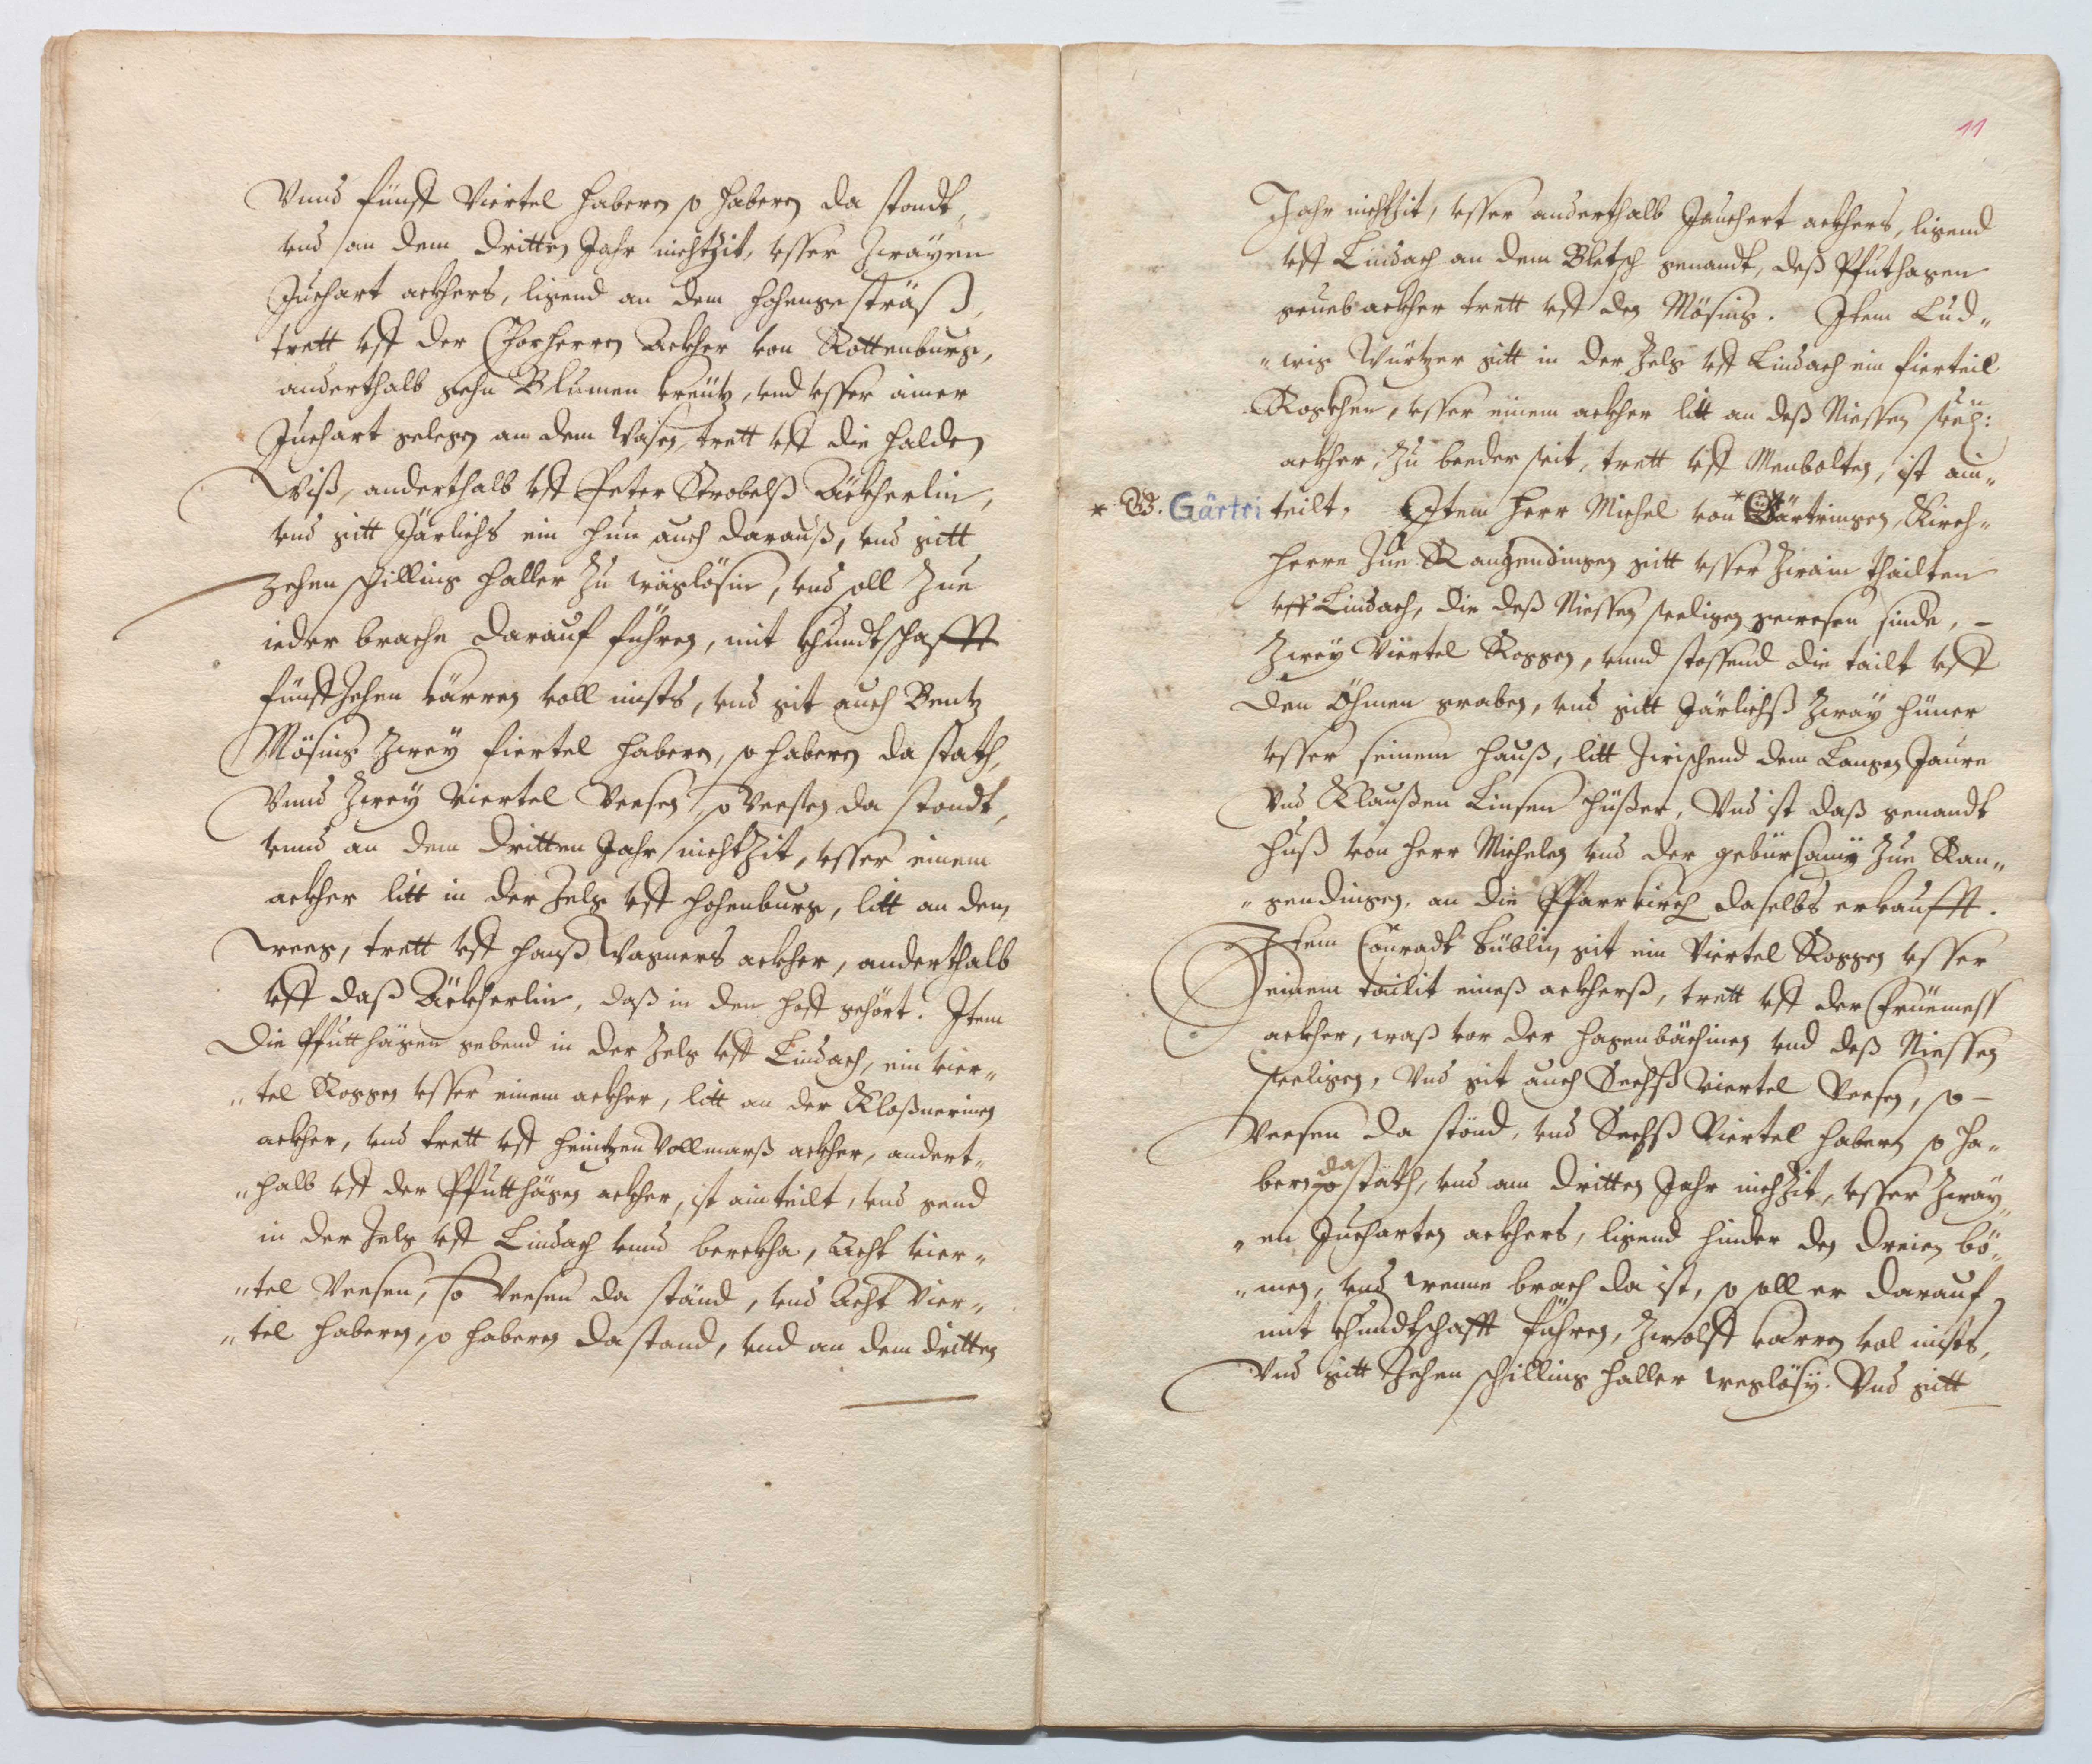 Vnnd fünff Viertel haberen so haberen da stondt,
vnd an dem dritten Jahr nichtzit, vsser zwayen
Juchart ackhers, ligend an dem hohengesträß,
trett vff der Chorherren Ackher von Rottenburg,
anderthalb gehn Blumen kreütz, vnd vsser ainer
Juchart gelegen am dem Wasen, trett vff die halden
Wiß, anderthalb vff Peter Strobelß Äckherlin,
vnd gitt Järlichs ein hun auch darauß, vnd gitt
zehen schilling haller zu wäglösin, vnd soll zue
ieder brache darauf führen, mit khundtschafft
fünffzehen kärren voll mists, vnd git auch Bentz
Mösing zwey fiertel haberen, so haberen da stath,
Vnnd zwey viertel Veesen, so Veesen da stondt,
vnnd an dem dritten Jahr nichtzit, vsser einem
ackher litt in der Zelg vff hohenburg, litt an dem
weeg, trett vff hanß Wagners ackher, anderthalb
vff daß Äckherlin, daß in den hoff gehört. Item
die Pfutthägen gebend in der Zelg vff Lindach, ein vier„
„tel Roggen vsser einem ackher, litt an der Kloßnerinen
ackher, vnd trett vff heintzen Vollmarß ackher, andert„
„halb vff der Pfutthägen ackher, ist ainteilt, vnd gend
in der Zelg vff Lindach vnnd berckha, Acht vier„
„tel Veesen, so Veesen da ständ, vnd Acht Vier„
„tel haberen, so haberen da stand, vnd an dem dritten
11
Jahr nichtzit, vsser anderthalb Jauchert ackhers, ligend
vff Lindach an dem Bletsch genandt, deß Pfuthagen
grueb ackher trett vff den Mösing. Item Lud„
„wig Würtzer gitt in der Zelg vff Lindach ein fierteil
Rockhen, vsser einem ackher litt an deß Niessen seel:
ackher, zu beeder seit, trett vff Menbolten, ist ain„
* W. Gärtri teilt. Item Herr Michel von * Gärtringen, Kirch„
herre zue Rangendingen gitt vsser zwain thailten
vff Lindach, die deß Niessen seeligen gewesen sinde, –
Zwey Viertel Roggen, vnnd stossend die tailt vff
den Öhmen graben, vnd gitt Järlichß zway hüner
vsser seinem hauß, litt zwischend dem Langen Jaure
vnd Klaußen Linsen hüßer, Vnd ist daß genandt
huß von herr Michelen vnd der gebürsamy zue Ran„
„gendingen, an die Pfarrkirch daselbs erkaufft.
Item Conradt Süblin, git ein Viertel Roggen vsser
einem tailit eineß ackherß, trett vff der Früemess
ackher, waß vor der hagenbächinen vnd deß Niessen
seeligen, Vnd git auch Sechß viertel Veesen, so –
Veesen da stönd, vnd Sechß Viertel habern so ha„
bern da stäth, vnd am dritten Jahr nichzit, vsser zway„
„en Jucharten ackhers, ligend hinder den dreien bö„
„men, vnd wenne brach da ist, so soll er darauf
mit khundtschafft führen, zwolff karren vol mists,
Vnd gitt Zehen schilling haller weglösy. Vnd gitt